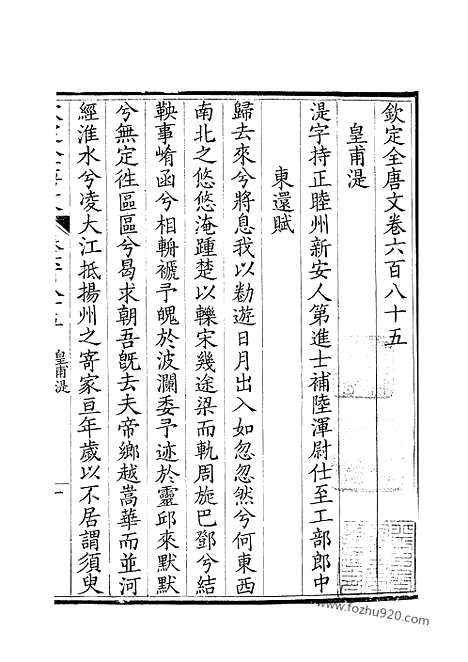 欽定全唐文卷六百八十五
皇甫湜
湜字持正睦州新安人第進士補陸渾尉仕至工部郎中
東還賦
歸去來兮將息我以勌遊日月出入如忽忽然兮何東西
南北之悠悠淹踵楚以轢宋幾途梁而軌周旋巴鄧兮結
鞅事崤函兮相輈褫予魄於波瀾委予迹於靈邱來默默
兮無定徃區區兮曷求朝吾旣去夫帝鄉越嵩華而並河
經淮水兮凌大江抵揚州之寄家亘年歲以不居謂須臾
皇甫湜
一
www.fozhu920.com